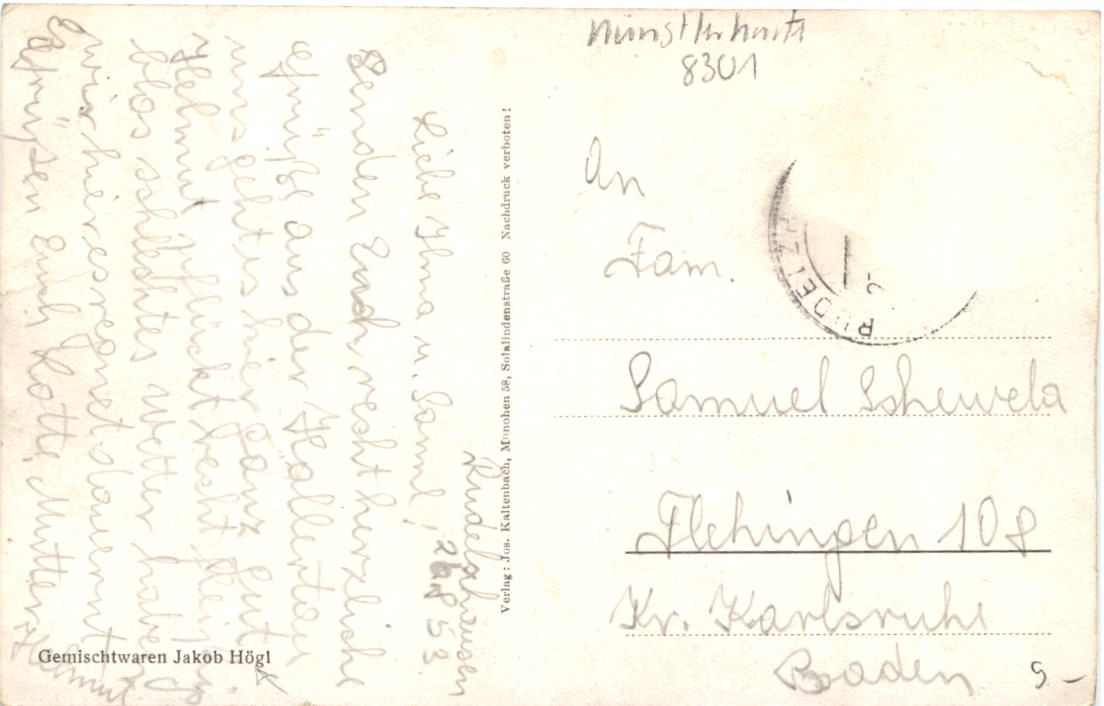 8301
Rudelzhausen
24.8.53
Liebe Ilma u. Saml!
Senden Euch recht herzliche
Grüße aus der Hallertau
uns geht es hier ganz gut
Helmut pflückt recht fleißig
blos schlechtes Wetter haben
wir hier es regnet dauernt
Es grüßen Euch Lotte, Mutter u. Helmut
Verlag: Jos. Kaltenbach, München 58, Solalindenstraße 60 Nachdruck verboten!
Gemischtwaren Jakob Högl
RUDELZ
An
Fam.
Samuel Schewela
Flehingen 108
Kr. Karlsruhe
Baden
9-